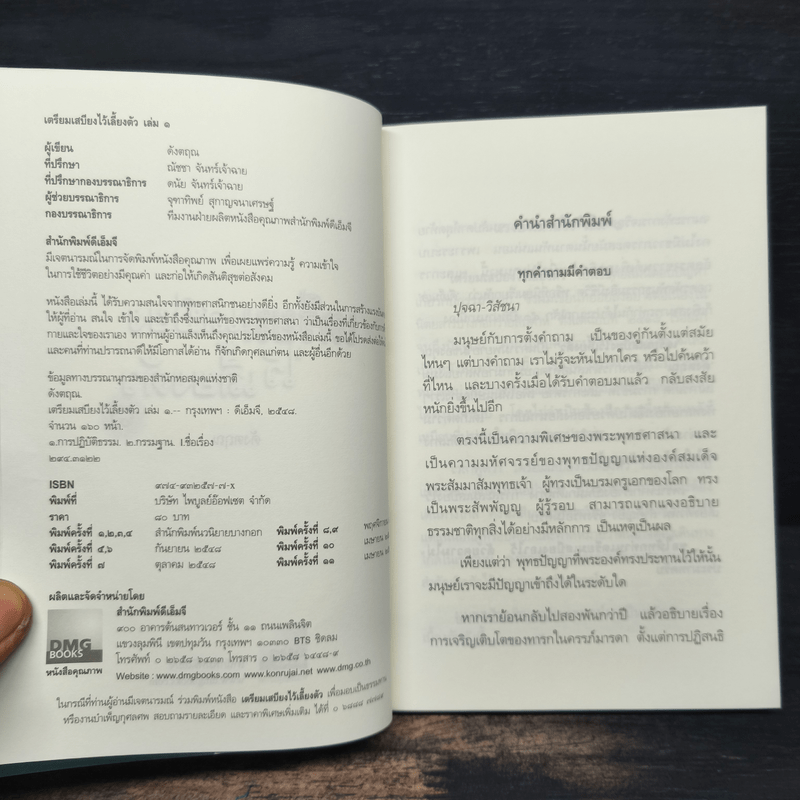 เตรียมเสบียงไว้เลี้ยงตัว เล่ม ๑
ผู้เขียน ดังตฤณ
ที่ปรึกษา ณัชชา จันทร์เจ้าฉาย
ที่ปรึกษากองบรรณาธิการ ดนัย จันทร์เจ้าฉาย
ผู้ช่วยบรรณาธิการ จุฑาทิพย์ สุกาญจนาเศรษฐ์
กองบรรณาธิการ ทีมงานฝ่ายผลิตหนังสือคุณภาพสำนักพิมพ์ดีเอ็มจี
สำนักพิมพ์ดีเอ็มจี
มีเจตนารมณ์ในการจัดพิมพ์หนังสือคุณภาพ เพื่อเผยแพร่ความรู้ ความเข้าใจ
ในการใช้ชีวิตอย่างมีคุณค่า และก่อให้เกิดสันติสุขต่อสังคม
หนังสือเล่มนี้ ได้รับความสนใจจากพุทธศาสนิกชนอย่างดียิ่ง อีกทั้งยังมีส่วนในการสร้างแรง
ให้ผู้ที่อ่าน สนใจ เข้าใจ และเข้าถึงซึ่งแก่นแท้ของพระพุทธศาสนา ว่าเป็นเรื่องที่เกี่ยวข้องกับ
กายและใจของเราเอง หากท่านผู้อ่านเล็งเห็นถึงคุณประโยชน์ของหนังสือเล่มนี้ ขอได้โปรดส่งต่อ
และคนที่ท่านปรารถนาดีให้มีโอกาสได้อ่าน ก็จักเกิดกุศลแก่ตน และผู้อื่นอีกด้วย
ข้อมูลทางบรรณานุกรมของสำนักหอสมุดแห่งชาติ
ดังตฤณ.
เตรียมเสบียงไว้เลี้ยงตัว เล่ม ๑.-- กรุงเทพฯ : ดีเอ็มจี, ๒๕๔๘.
จำนวน ๑๖๐ หน้า.
๑.การปฏิบัติธรรม. ๒.กรรมฐาน. I.ชื่อเรื่อง
๒๙๔.๓๑๒๒
ISBN ๙๗๔-๙๓๒๕๗-๗-x
พิมพ์ที่ บริษัท ไพบูลย์อ๊อฟเซต จำกัด
ราคา ๘๐ บาท
พิมพ์ครั้งที่ ๑,๒,๓,๔ สำนักพิมพ์นวนิยายบางกอก พิมพ์ครั้งที่ ๘,๙
พิมพ์ครั้งที่ ๕,๖ กันยายน ๒๕๔๘ พิมพ์ครั้งที่ ๑๐
พิมพ์ครั้งที่ ๗ ตุลาคม ๒๕๔๘ พิมพ์ครั้งที่ ๑๑
ผลิตและจัดจำหน่ายโดย
DMG
BOOKS
หนังสือคุณภาพ
สำนักพิมพ์ดีเอ็มจี
๙๐๐ อาคารต้นสนทาวเวอร์ ชั้น ๑๑ ถนนเพลินจิต
แขวงลุมพินี เขตปทุมวัน กรุงเทพฯ ๑๐๓๓๐ BTS ชิดลม
โทรศัพท์ ๐ ๒๖๕๘ ๖๔๓๓ โทรสาร ๐ ๒๖๕๘ ๖๔๔๘-๙
Website : www.dmgbooks.com www.konrujai.net www.dmg.co.th
ในกรณีที่ท่านผู้อ่านมีเจตนารมณ์ ร่วมพิมพ์หนังสือ เตรียมเสบียงไว้เลี้ยงตัว เพื่อมอบเป็นธรรมทาน
หรืองานบำเพ็ญกุศลศพ สอบถามรายละเอียด และราคาพิเศษเพิ่มเติม ได้ที่
คำนำสำนักพิมพ์
ทุกคำถามมีคำตอบ
ปุจฉา-วิสัชนา
มนุษย์กับการตั้งคำถาม เป็นของคู่กันตั้งแต่สมัย
ไหนๆ แต่บางคำถาม เราไม่รู้จะหันไปหาใคร หรือไปค้นคว้า
ที่ไหน และบางครั้งเมื่อได้รับคำตอบมาแล้ว กลับสงสัย
หนักยิ่งขึ้นไปอีก
ตรงนี้เป็นความพิเศษของพระพุทธศาสนา และ
เป็นความมหัศจรรย์ของพุทธปัญญาแห่งองค์สมเด็จ
พระสัมมาสัมพุทธเจ้า ผู้ทรงเป็นบรมครูเอกของโลก ทรง
เป็นพระสัพพัญญู ผู้รู้รอบ สามารถแจกแจงอธิบาย
ธรรมชาติทุกสิ่งได้อย่างมีหลักการ เป็นเหตุเป็นผล
เพียงแต่ว่า พุทธปัญญาที่พระองค์ทรงประทานไว้ให้นั้น
มนุษย์เราจะมีปัญญาเข้าถึงได้ในระดับใด
หากเราย้อนกลับไปสองพันกว่าปี แล้วอธิบายเรื่อง
การเจริญเติบโตของทารกในครรภ์มารดา ตั้งแต่การปฏิสนธิ